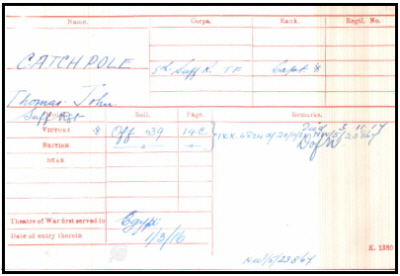 Name. Corps. Rank. Regtl. No.
CATCHPOLE 5/ Suff R. TF Capt.
Thomas John
Suff Rgt Roll. Page. Remarks.
VICTORY Off 139 14C
BRITISH " "
STAR
D of W
Theatre of War first served in Egypt
Date of entry therein 1/3/16
NW/5/23867
K. 1380